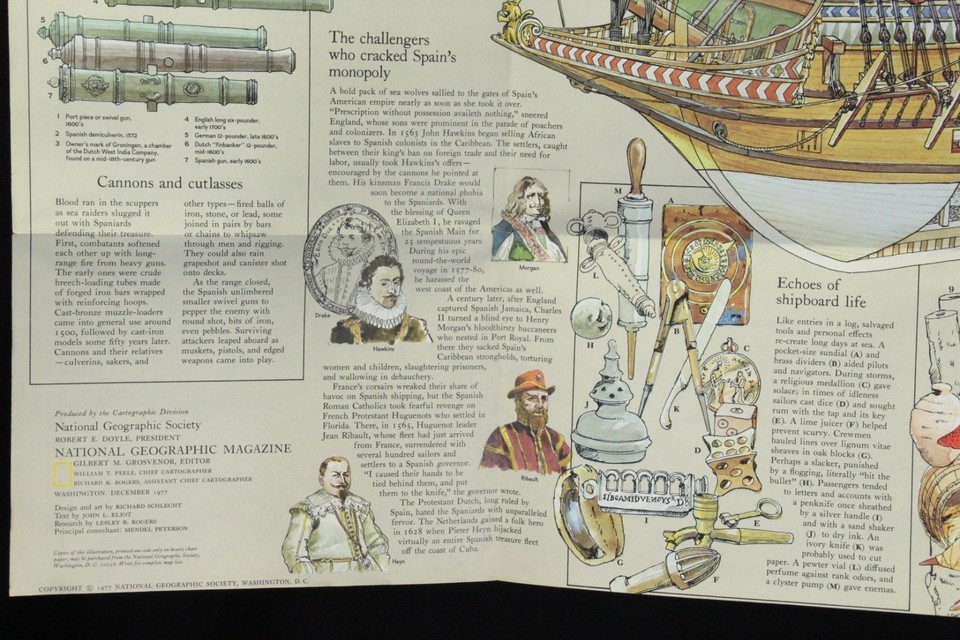 4
5
6
7
1 Port piece or swivel gun,
1600's
2 Spanish demiculverin, 1572
3 Owner's mark of Groningen, a chamber
of the Dutch West India Company,
found on a mid-18th-century gun
4 English long six-pounder,
early 1700's
5 German 12-pounder, late 1600's
6 Dutch "Finbanker" 12-pounder,
1600's
7 Spanish gun, early 1600's
Cannons and cutlasses
Blood ran in the scuppers
as sea raiders slugged it
out with Spaniards
defending their treasure.
First, combatants softened
each other up with long-
range fire from heavy guns.
The early ones were crude
breech-loading tubes made
of forged iron bars wrapped
with reinforcing hoops.
Cast-bronze muzzle-loaders
came into general use around
1500, followed by cast-iron
models some fifty years later.
Cannons and their relatives
—culverins, sakers, and
other types—fired balls of
iron, stone, or lead, some
joined in pairs by bars
or chains to whipsaw
through men and rigging.
They could also rain
grapeshot and canister shot
onto decks.
As the range closed,
the Spanish unlimbered
smaller swivel guns to
pepper the enemy with
round shot, bits of iron,
even pebbles. Surviving
attackers leaped aboard as
muskets, pistols, and edged
weapons came into play.
Produced by the Cartographic Division
National Geographic Society
ROBERT E. DOYLE, PRESIDENT
NATIONAL GEOGRAPHIC MAGAZINE
GILBERT M. GROSVENOR, EDITOR
WILLIAM T. PEELE, CHIEF CARTOGRAPHER
RICHARD K. ROGERS, ASSISTANT CHIEF CARTOGRAPHER
WASHINGTON: DECEMBER 1977
Design and art by RICHARD SCHLECHT
Text by JOHN L. ELIOT
Research by LESLEY B. ROGERS
Principal consultant: MENDEL PETERSON
Copies of this illustration, printed one side only on heavy chart
paper, may be purchased from the National Geographic Society,
Washington, D. C. 20036. Write for complete map list.
COPYRIGHT © 1977 NATIONAL GEOGRAPHIC SOCIETY, WASHINGTON, D. C.
The challengers
who cracked Spain's
monopoly
A bold pack of sea wolves sallied to the gates of Spain's
American empire nearly as soon as she took it over.
"Prescription without possession availeth nothing," sneered
England, whose sons were prominent in the parade of poachers
and colonizers. In 1563 John Hawkins began selling African
slaves to Spanish colonists in the Caribbean. The settlers, caught
between their king's ban on foreign trade and their need for
labor, usually took Hawkins's offers—
encouraged by the cannons he pointed at
them. His kinsman Francis Drake would
soon become a national phobia
to the Spaniards. With
the blessing of Queen
Elizabeth I, he ravaged
the Spanish Main for
25 tempestuous years.
During his epic
round-the-world
voyage in 1577-80,
he harassed the
west coast of the Americas as well.
A century later, after England
captured Spanish Jamaica, Charles
II turned a blind eye to Henry
Morgan's bloodthirsty buccaneers
who nested in Port Royal. From
there they sacked Spain's
Caribbean strongholds, torturing
women and children, slaughtering prisoners,
and wallowing in debauchery.
France's corsairs wreaked their share of
havoc on Spanish shipping, but the Spanish
Roman Catholics took fearful revenge on
French Protestant Huguenots who settled in
Florida. There, in 1565, Huguenot leader
Jean Ribault, whose fleet had just arrived
from France, surrendered with
several hundred sailors and
settlers to a Spanish governor.
"I caused their hands to be
tied behind them, and put
them to the knife," the governor wrote.
The Protestant Dutch, long ruled by
Spain, hated the Spaniards with unparalleled
fervor. The Netherlands gained a folk hero
in 1628 when Pieter Heyn hijacked
virtually an entire Spanish treasure fleet
off the coast of Cuba.
Drake
Hawkins
Morgan
Ribault
Heyn
M
A
L
B
H
C
J
K
D
I
E
G
F
Echoes of
shipboard life
Like entries in a log, salvaged
tools and personal effects
re-create long days at sea. A
pocket-size sundial (A) and
brass dividers (B) aided pilots
and navigators. During storms,
a religious medallion (C) gave
solace; in times of idleness
sailors cast dice (D) and sought
rum with the tap and its key
(E). A lime juicer (F) helped
prevent scurvy. Crewmen
hauled lines over lignum vitae
sheaves in oak blocks (G).
Perhaps a slacker, punished
by a flogging, literally "bit the
bullet" (H). Passengers tended
to letters and accounts with
a penknife once sheathed
by a silver handle (I)
and with a sand shaker
(J) to dry ink. An
ivory knife (K) was
probably used to cut
paper. A pewter vial (L) diffused
perfume against rank odors, and
a clyster pump (M) gave enemas.
9